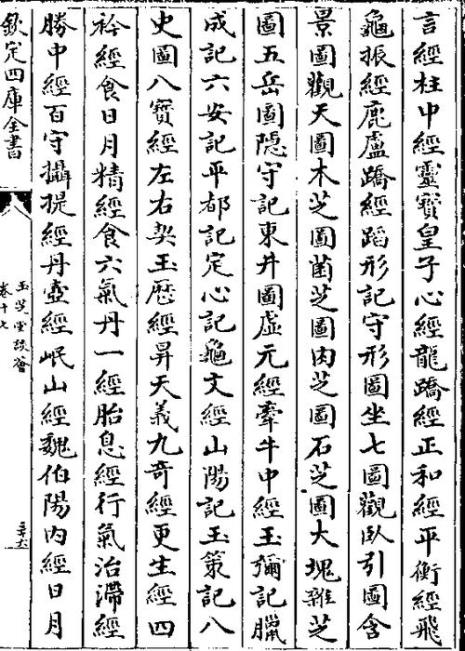 言經柱中經靈寶皇子心經龍蹻經正和經平衡經飛
龜振經鹿盧蹻經蹈形記守形圖坐亡圖觀臥引圖含
景圖觀天圖木芝圖菌芝圖肉芝圖石芝圖大塊雜芝
圖五岳圖隱守記東井圖虛元經牽牛中經玉彌記臘
成記六安記平都記定心記龜文經山陽記玉策記八
史圖八寶經左右契玉歷經昇天義九奇經更生經四
衿經食日月精經食六氣丹一經胎息經行氣治滯經
勝中經百守攝提經丹壺經岷山經魏伯陽內經日月
欽定四庫全書
玉芝堂談薈
卷十七